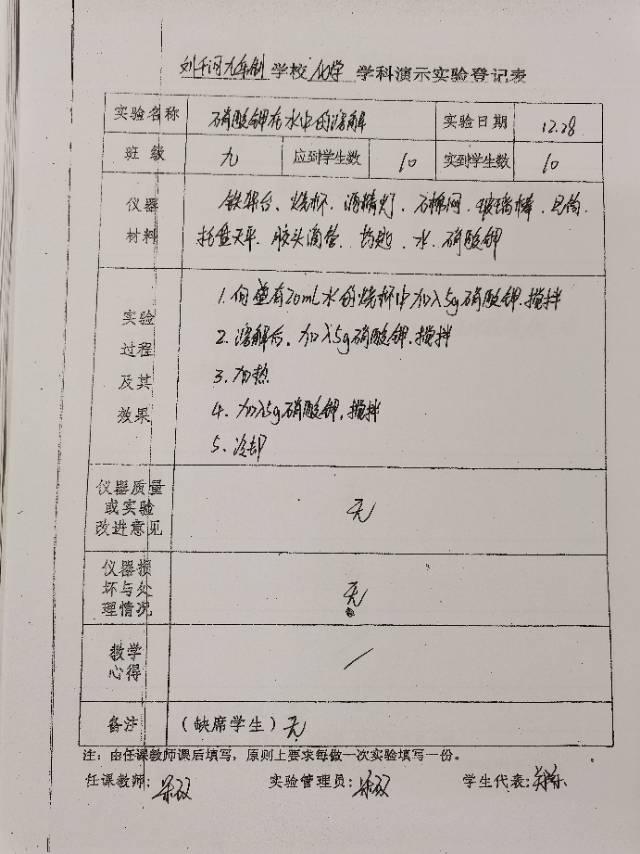 刘千河九年制学校 化学 学科演示实验登记表
实验名称 硝酸钾在水中的溶解 实验日期 12.28
班级 九 应到学生数 10 实到学生数 10
仪器材料 铁架台、烧杯、酒精灯、石棉网、玻璃棒、
托盘天平、胶头滴管、药匙、水、硝酸钾
实验过程及其效果
1.向盛有20mL水的烧杯中加入5g硝酸钾.搅拌
2.溶解后.加入5g硝酸钾.搅拌
3.加热
4.加入5g硝酸钾,搅拌
5.冷却
仪器质量或实验改进意见 无
仪器损坏与处理情况 无
教学心得 /
备注 (缺席学生)无
注:由任课教师课后填写,原则上要求每做一次实验填写一份。
任课教师: 实验管理员: 学生代表: